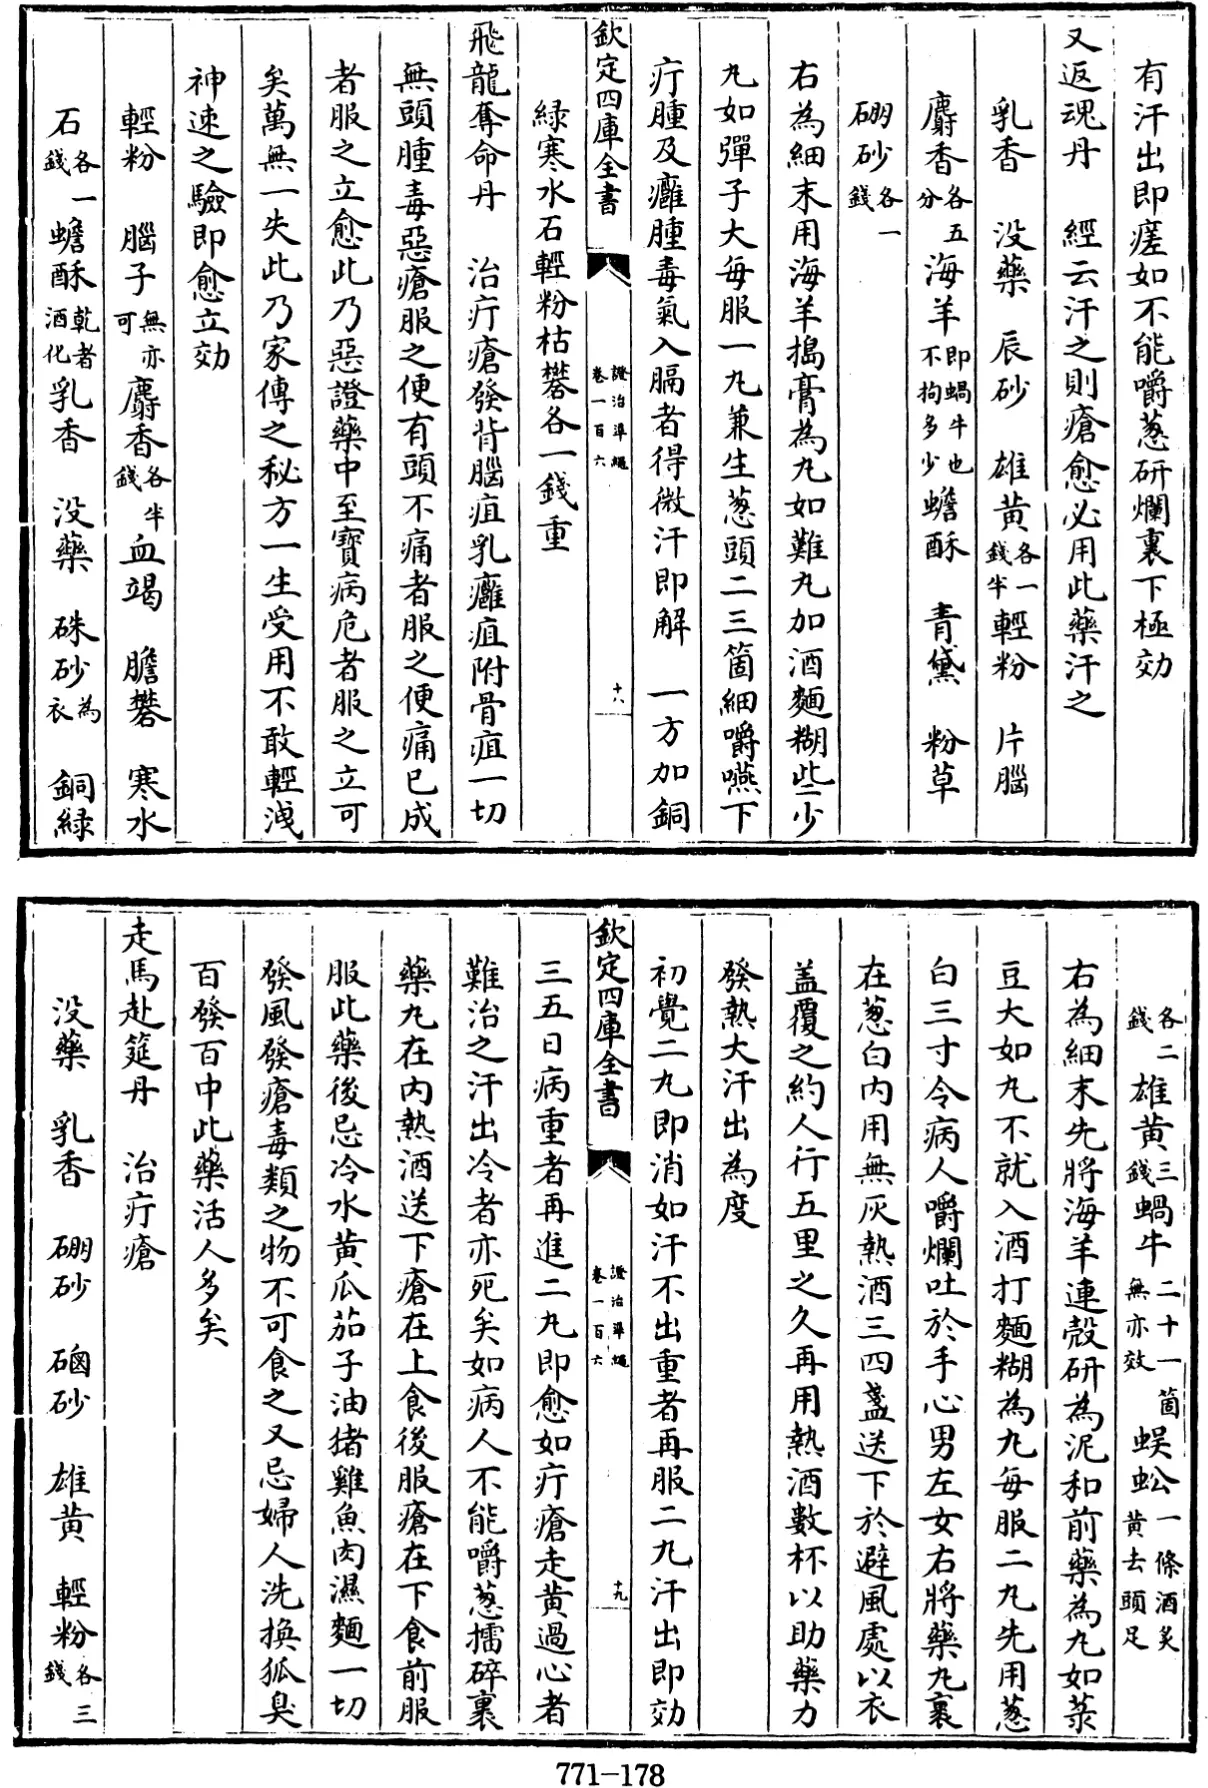 有汗出即瘥如不能嚼葱研爛裏下極効
又返魂丹　經云汗之則瘡愈必用此藥汗之
乳香　没藥　辰砂　雄黄各一錢半輕粉　片腦
麝香各五分海羊即蝸牛也不拘多少蟾酥　青黛　粉草
硼砂各一錢
右為細末用海羊搗膏為丸如難丸加酒麵糊些少
丸如彈子大每服一丸兼生葱頭二三箇細嚼嚥下
疔腫及癰腫毒氣入膈者得微汗即解　一方加銅
欽定四庫全書　證治準繩卷一百六　十八
緑寒水石輕粉枯礬各一錢重
飛龍奪命丹　治疔瘡發背腦疽乳癰疽附骨疽一切
無頭腫毒惡瘡服之便有頭不痛者服之便痛已成
者服之立愈此乃惡證藥中至寶病危者服之立可
矣萬無一失此乃家傳之秘方一生受用不敢輕洩
神速之驗即愈立効
輕粉　腦子無亦可麝香各半錢血竭　膽礬　寒水
石各一錢蟾酥乾者酒化乳香　没藥　硃砂為衣　銅緑
各二錢　雄黄三錢蝸牛二十一箇無亦效　蜈蚣一條酒炙黄去頭足
右為細末先將海羊連殼研為泥和前藥為丸如菉
豆大如丸不就入酒打麵糊為丸每服二丸先用葱
白三寸令病人嚼爛吐於手心男左女右將藥丸裏
在葱白内用無灰熱酒三四盞送下於避風處以衣
盖覆之約人行五里之久再用熱酒數杯以助藥力
發熱大汗出為度
初覺二丸即消如汗不出重者再服二丸汗出即効
欽定四庫全書　證治準繩卷一百六　十九
三五日病重者再進二丸即愈如疔瘡走黄過心者
難治之汗出冷者亦死矣如病人不能嚼葱擂碎裏
藥丸在内熱酒送下瘡在上食後服瘡在下食前服
服此藥後忌冷水黄瓜茄子油猪雞魚肉濕麵一切
發風發瘡毒類之物不可食之又忌婦人洗換狐臭
百發百中此藥活人多矣
走馬赴筵丹　治疔瘡
没藥　乳香　硼砂　硇砂　雄黄　輕粉各三錢
771-178